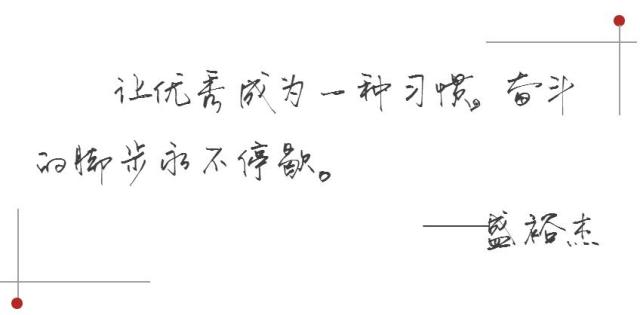 让优秀成为一种习惯。奋斗
的脚步永不停歇。
——盛裕杰